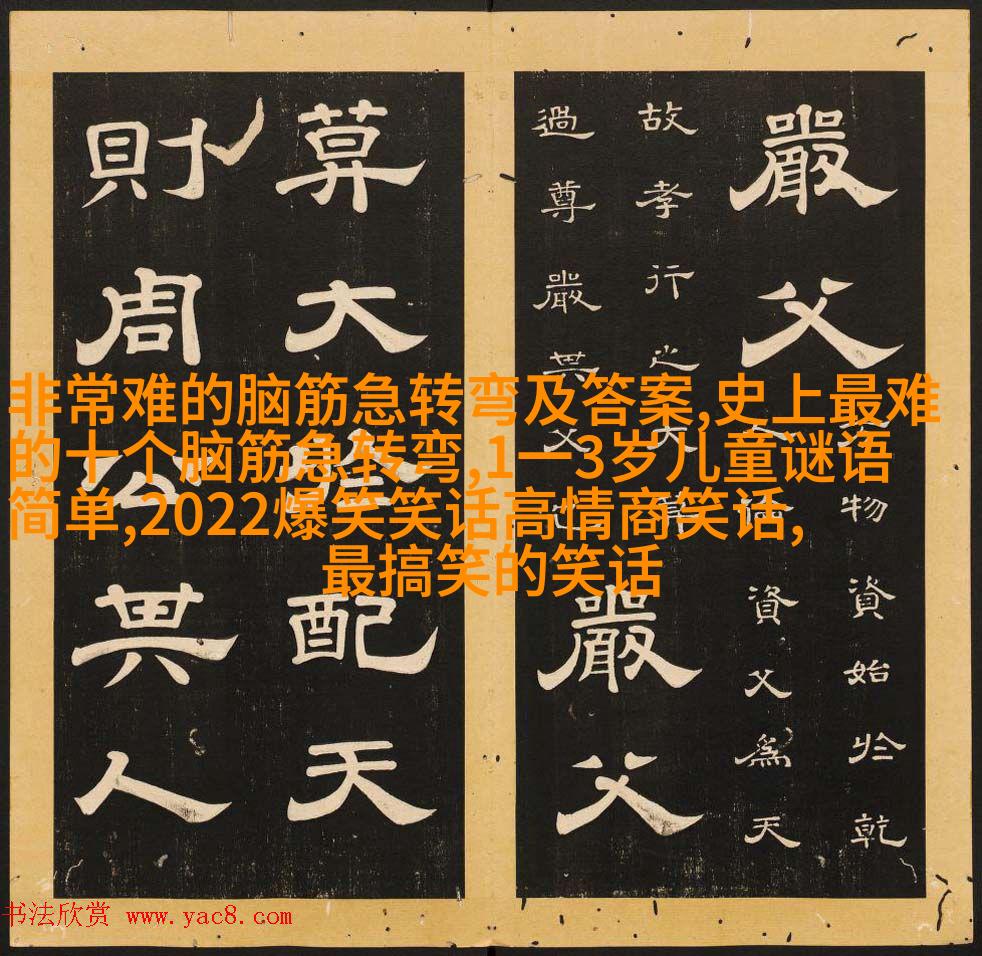 嚴父
物資始於乾
人倫資父為天
故孝行之大莫
過尊嚴其父也
嚴父
莫大於配天
則周公其人
非常难的脑筋急转弯及答案,史上最难
的十个脑筋急转弯,1一3岁儿童谜语
简单,2022爆笑笑话高情商笑话,
最搞笑的笑话
书法欣赏 www.yac8.com